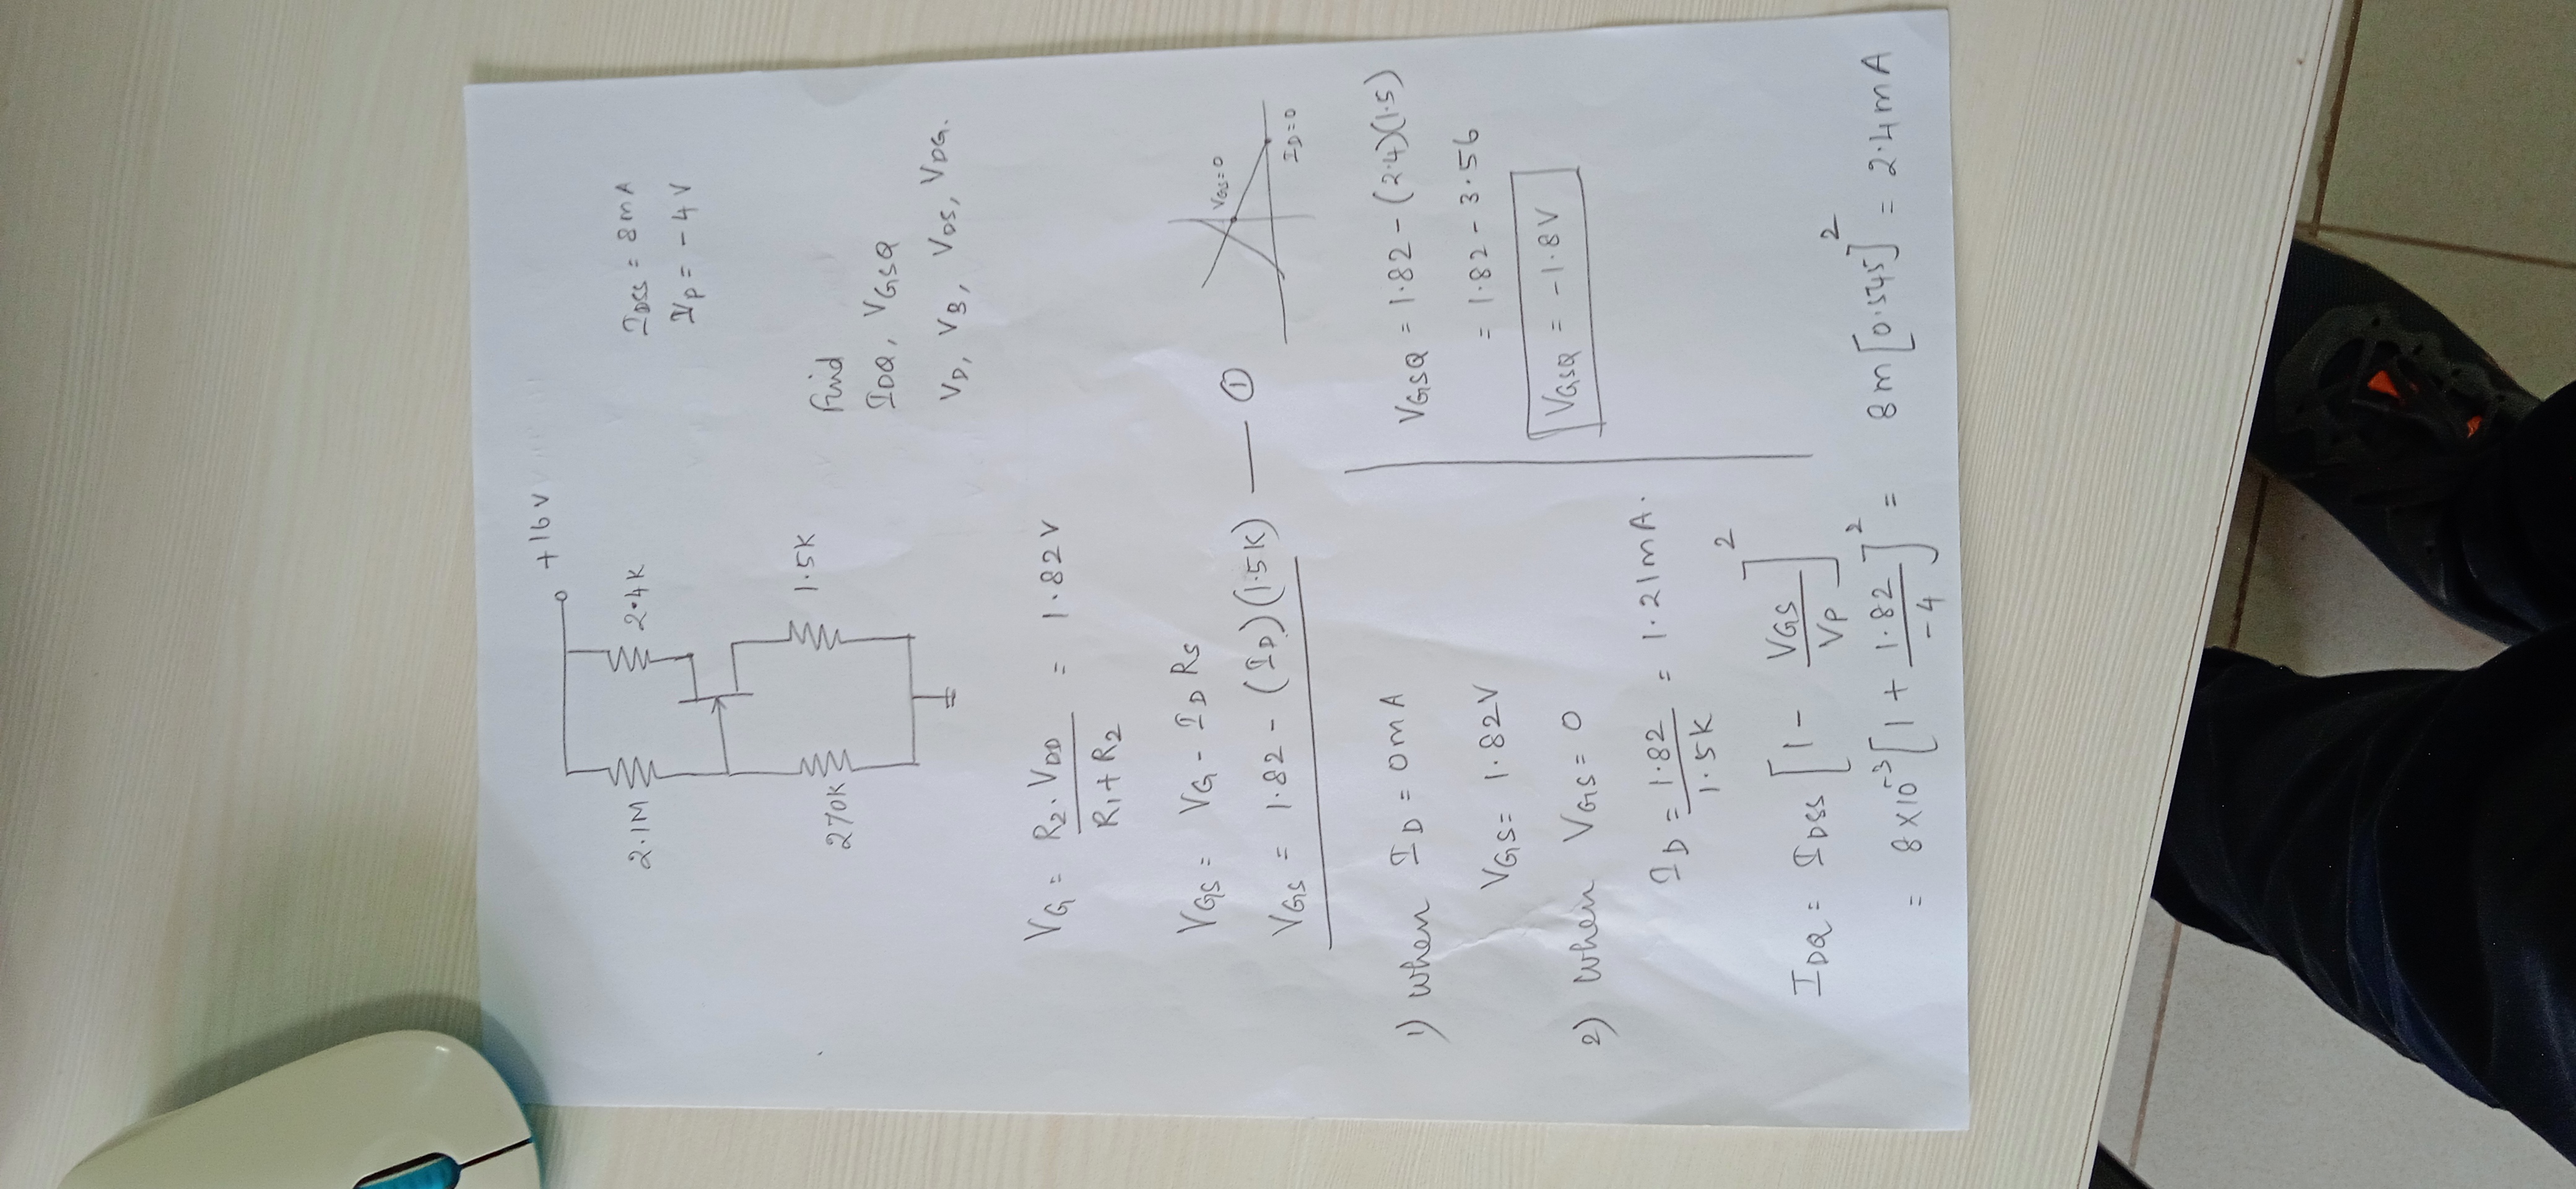 +16V
2.1M
2.4K
270K
1.5K
IDSS = 8mA
VP = -4V
Find
IDQ, VGSQ
VD, VS, VDS, VDG.
VG = R2. VDD / R1 + R2 = 1.82V
VGS = VG - ID RS
VGS = 1.82 - (ID)(1.5K) — ①
VGS=0
ID=0
1) When ID = 0mA
VGS = 1.82V
2) When VGS = 0
ID = 1.82 / 1.5K = 1.21mA.
VGSQ = 1.82 - (2.4)(1.5)
= 1.82 - 3.56
VGSQ = -1.8V
IDQ = IDSS [1 - VGS / VP]²
= 8×10⁻³ [1 + 1.82 / -4]² = 8m [0.545]² = 2.4mA